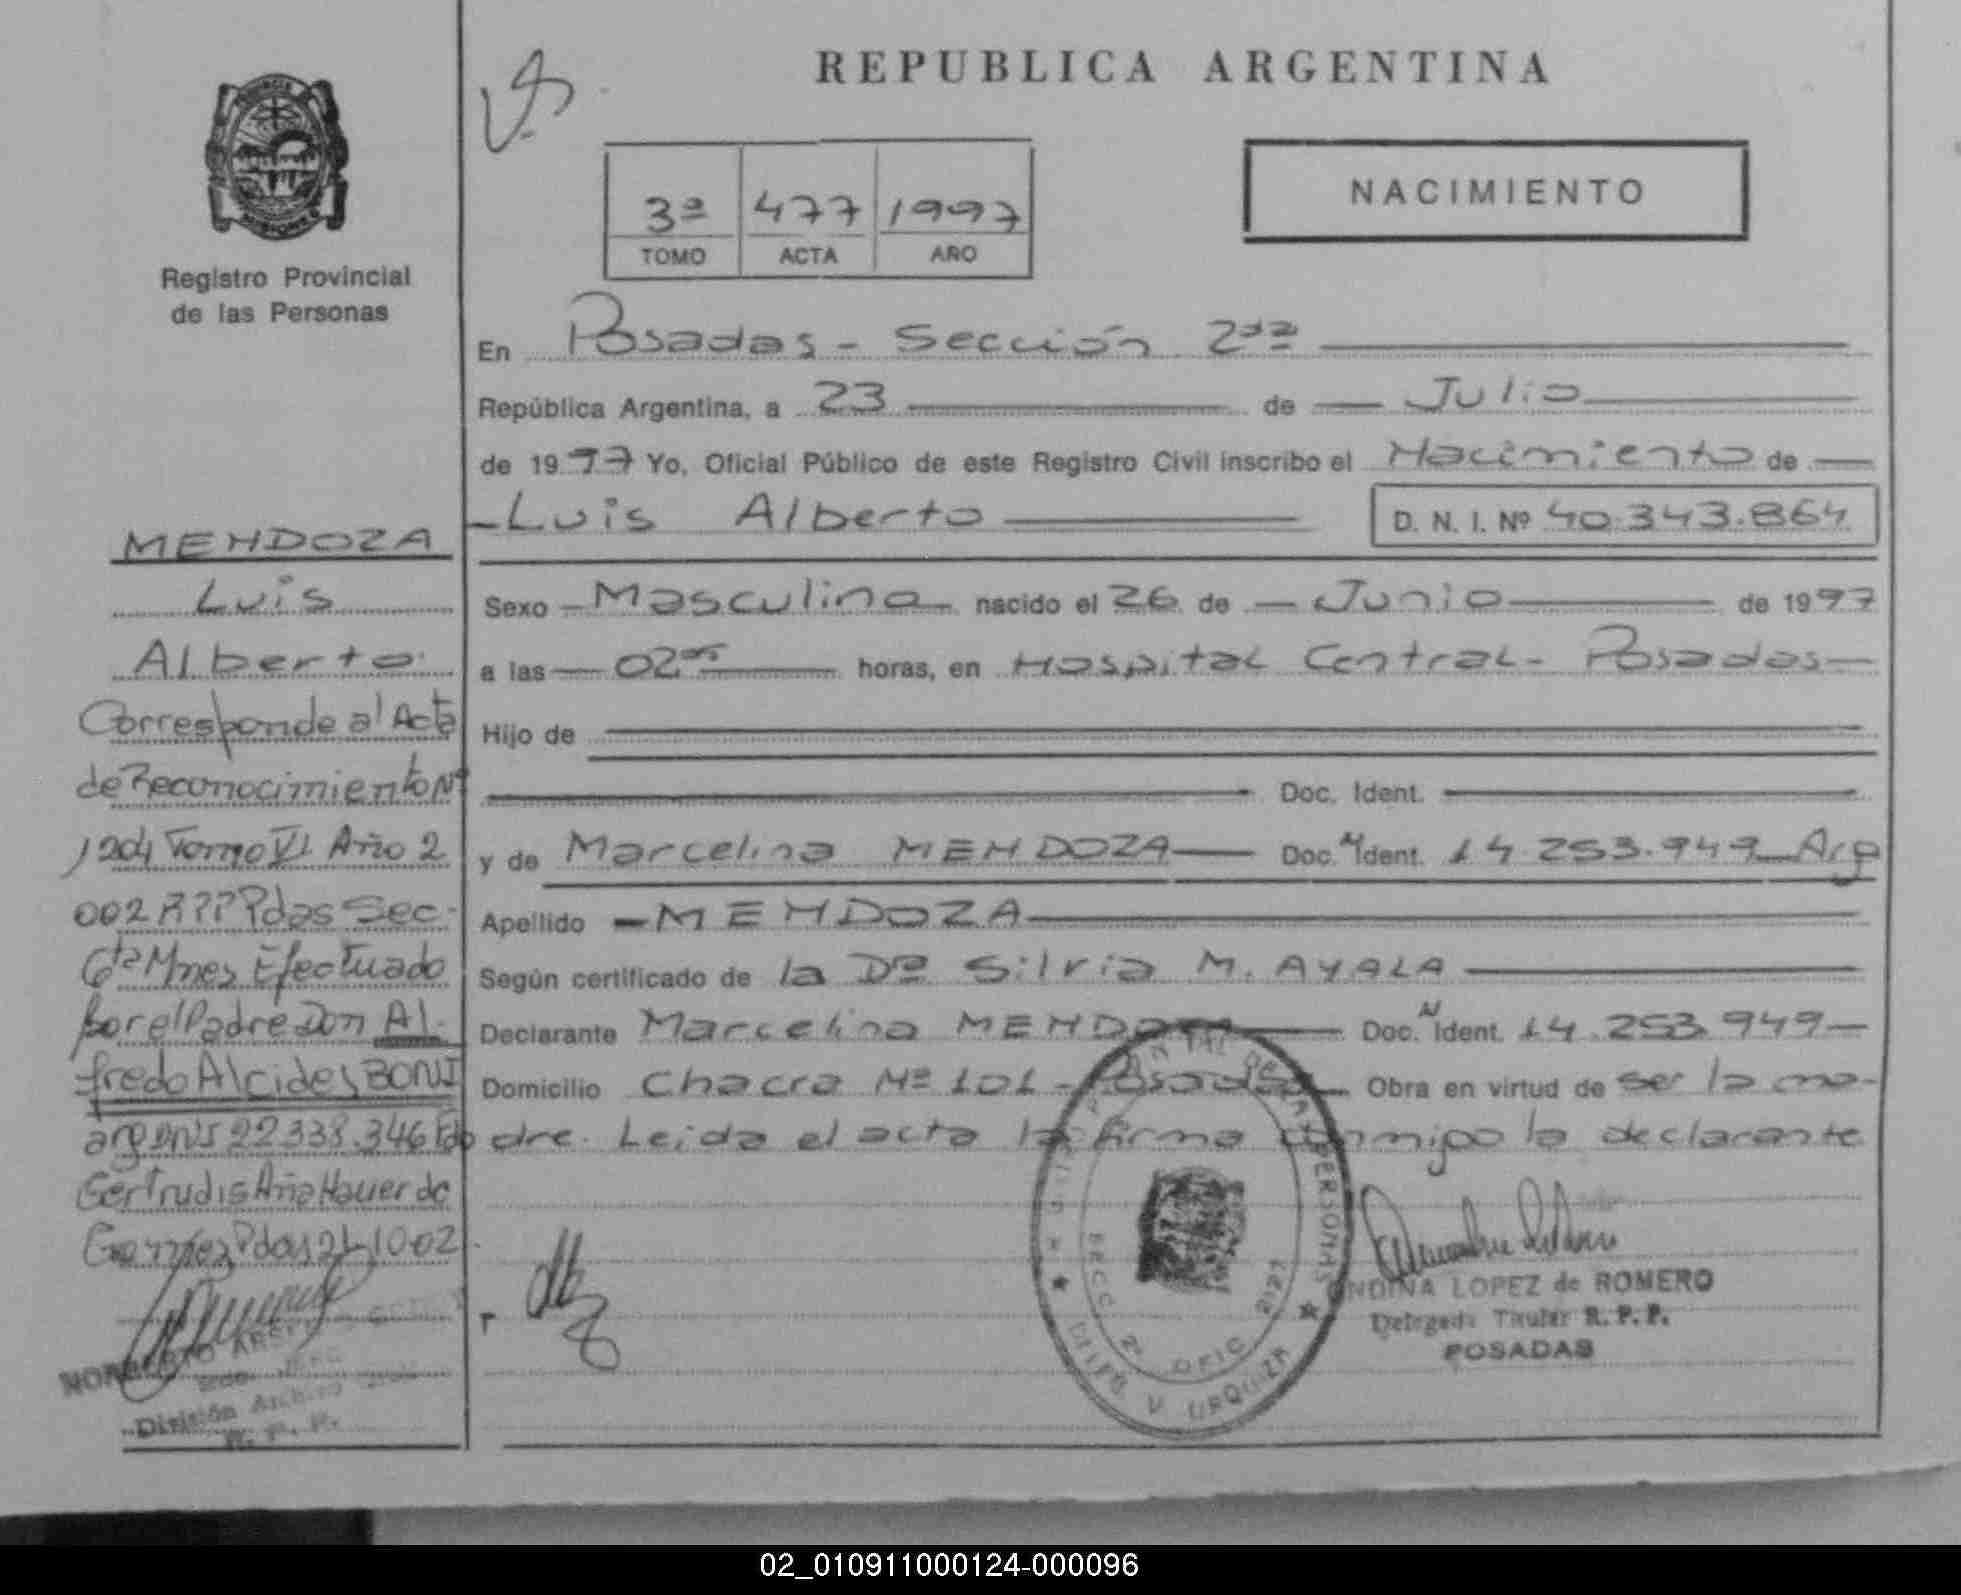 REPUBLICA ARGENTINA
NACIMIENTO
3ª 477 1997
TOMO ACTA AÑO
Registro Provincial
de las Personas
En Posadas - Sección 2da
República Argentina, a 23 de Julio
de 1997 Yo, Oficial Público de este Registro Civil inscribo el Nacimiento de
Luis Alberto D. N. I. Nº 40.343.864
Sexo Masculino nacido el 26 de Junio de 1997
a las 02 horas, en Hospital Central - Posadas
Hijo de
Doc. Ident.
y de Marcelina MENDOZA Doc. N Ident. 14.253.949 Arg
Apellido MENDOZA
Según certificado de la Dra Silvia M. AYALA
Declarante Marcelina MENDOZA Doc. N Ident. 14.253.949
Domicilio Chacra Nº 101 - Posadas Obra en virtud de ser la ma-
dre. Leida el acta la firma conmigo la declarante
MENDOZA
Luis
Alberto
Corresponde al Acta
de Reconocimiento Nº
1204 Tomo VI Año 2
002 RPP Pdas Sec.
6ta Mnes Efectuado
por el Padre Don Al-
fredo Alcides BONI
arg DNI 22.338.346 Fdo
Gertrudis Ana Hauer de
Pdas 21-10-02
División Archivo
R. P. P.
DE LAS PERSONAS
SECC 2ª OFIC 2127
URQUIZA
NDINA LOPEZ de ROMERO
Delegada Titular R. P. P.
POSADAS
02_010911000124-000096